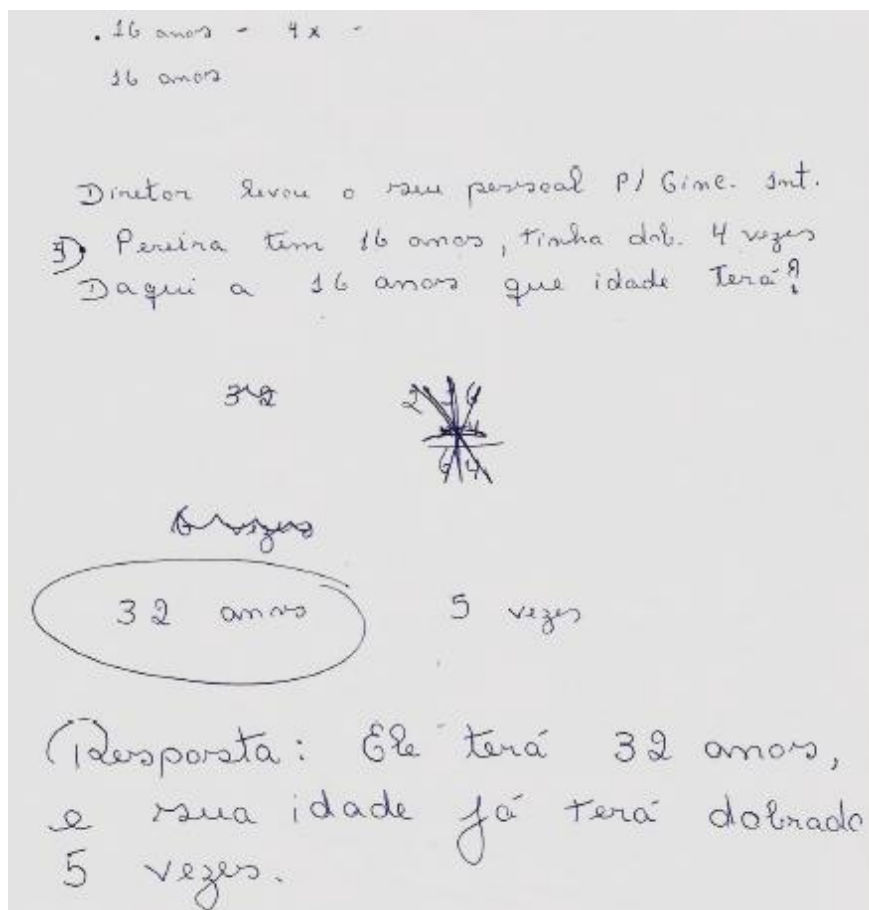 . 16 anos - 4 x -
16 anos
Diretor levou o seu pessoal P/ Gine. Int.
Pereira tem 16 anos, tinha dob. 4 vezes
Daqui a 16 anos que idade Terá?
32
6 vezes
32 anos 5 vezes
Resposta: Ele terá 32 anos,
e sua idade já terá dobrado
5 vezes.